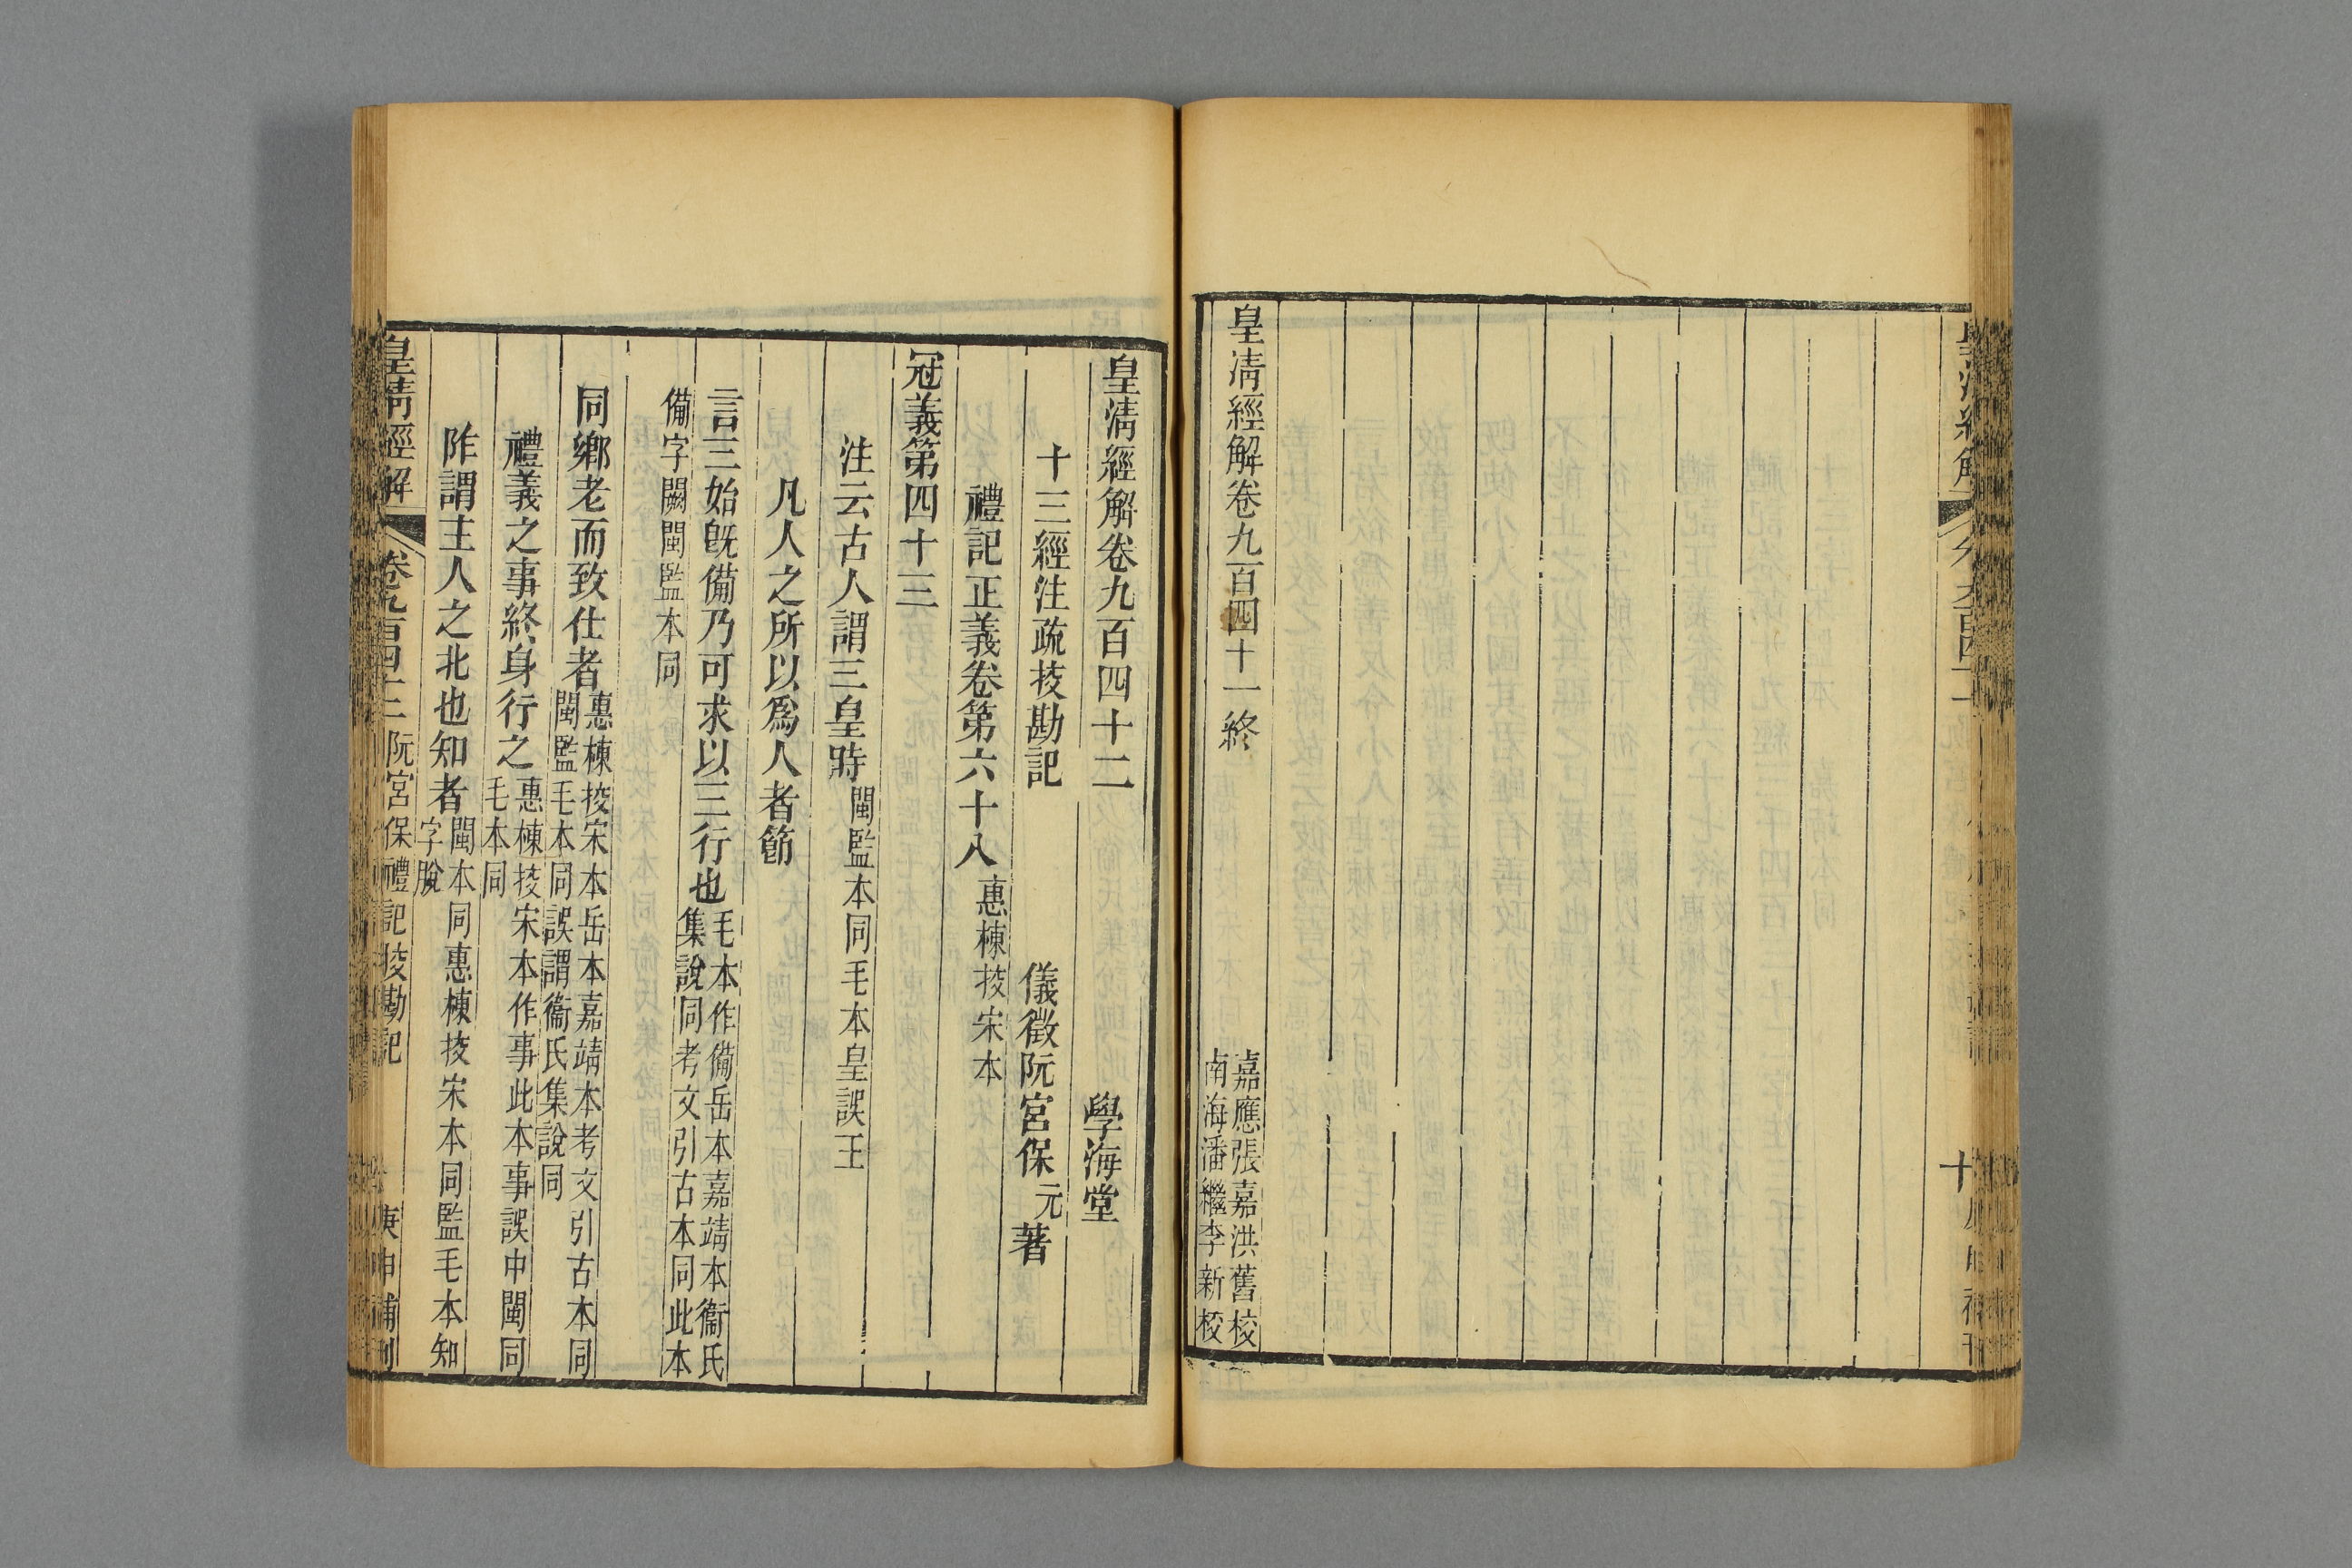 皇清經解卷九百四十一終
嘉應張嘉洪舊校
南海潘繼李新校
十
皇清經解卷九百四十二
學海堂
十三經注疏挍勘記
儀徵阮宮保元著
禮記正義卷第六十八 惠棟挍宋本
冠義第四十三
注云古人謂三皇時 閩監本同毛本皇誤王
凡人之所以爲人者節
言三始旣備乃可求以三行也 毛本作備岳本嘉靖本衞氏
集說同考文引古本同此本
備字闕閩監本同
同鄉老而致仕者 惠棟挍宋本岳本嘉靖本考文引古本同
閩監毛本同誤謂衞氏集說同
禮義之事終身行之 惠棟挍宋本作事此本事誤中閩同
毛本同
阼謂主人之北也知者 閩本同惠棟挍宋本同監毛本知
字脫
皇清經解
卷九百四十二
阮宮保禮記挍勘記
庚申補刊